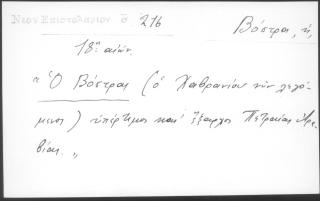 Νεον Επιστολαριον σ 216
Βόστρα, ἡ,
18ος αἰών.
"Ὁ Βόστρας (ὁ Χαθρανίου νῦν λεγό-
μενος) ὑπέρτιμος καὶ ἔξαρχος Πετραίας Ἀρα-
βίας."